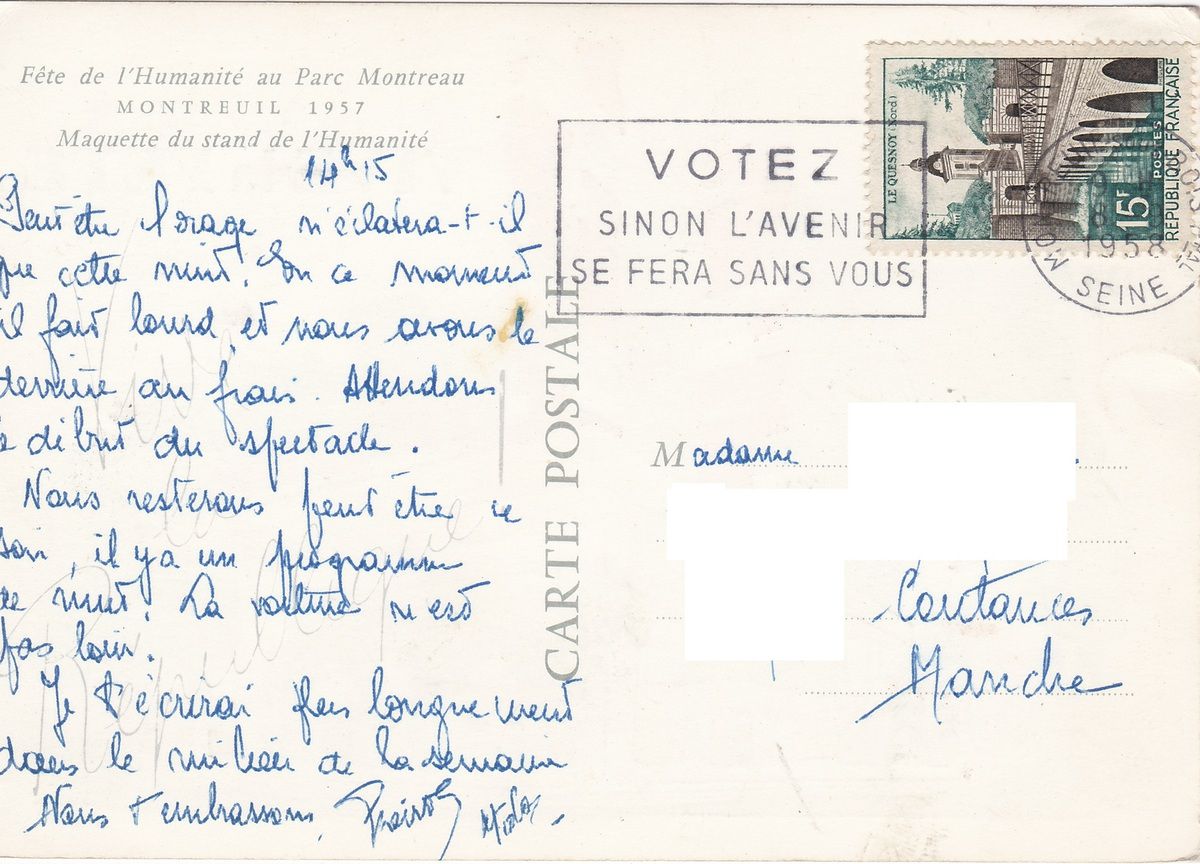 Fête de l'Humanité au Parc Montreau
MONTREUIL 1957
Maquette du stand de l'Humanité
14h15
Peut être l'orage n'éclatera-t-il
que cette nuit. En ce moment
il fait lourd, et nous avons le
derrière au frais. Attendons
le début du spectacle.
Nous resterons peut être ce
soir, il y a un programme
de nuit. La voiture n'est
pas loin.
Je t'écrirai plus longuement
dans le milieu de la semaine
Nous t'embrassons,
Vive
la
République
CARTE POSTALE
VOTEZ
SINON L'AVENIR
SE FERA SANS VOUS
LE QUESNOY (Nord)
15F
POSTES
REPUBLIQUE FRANÇAISE
1958
SEINE
Madame
Coutances
Manche